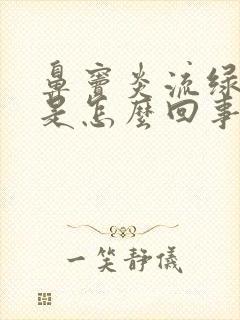 鼻竇炎流綠
是怎麼回事
一笑靜儀